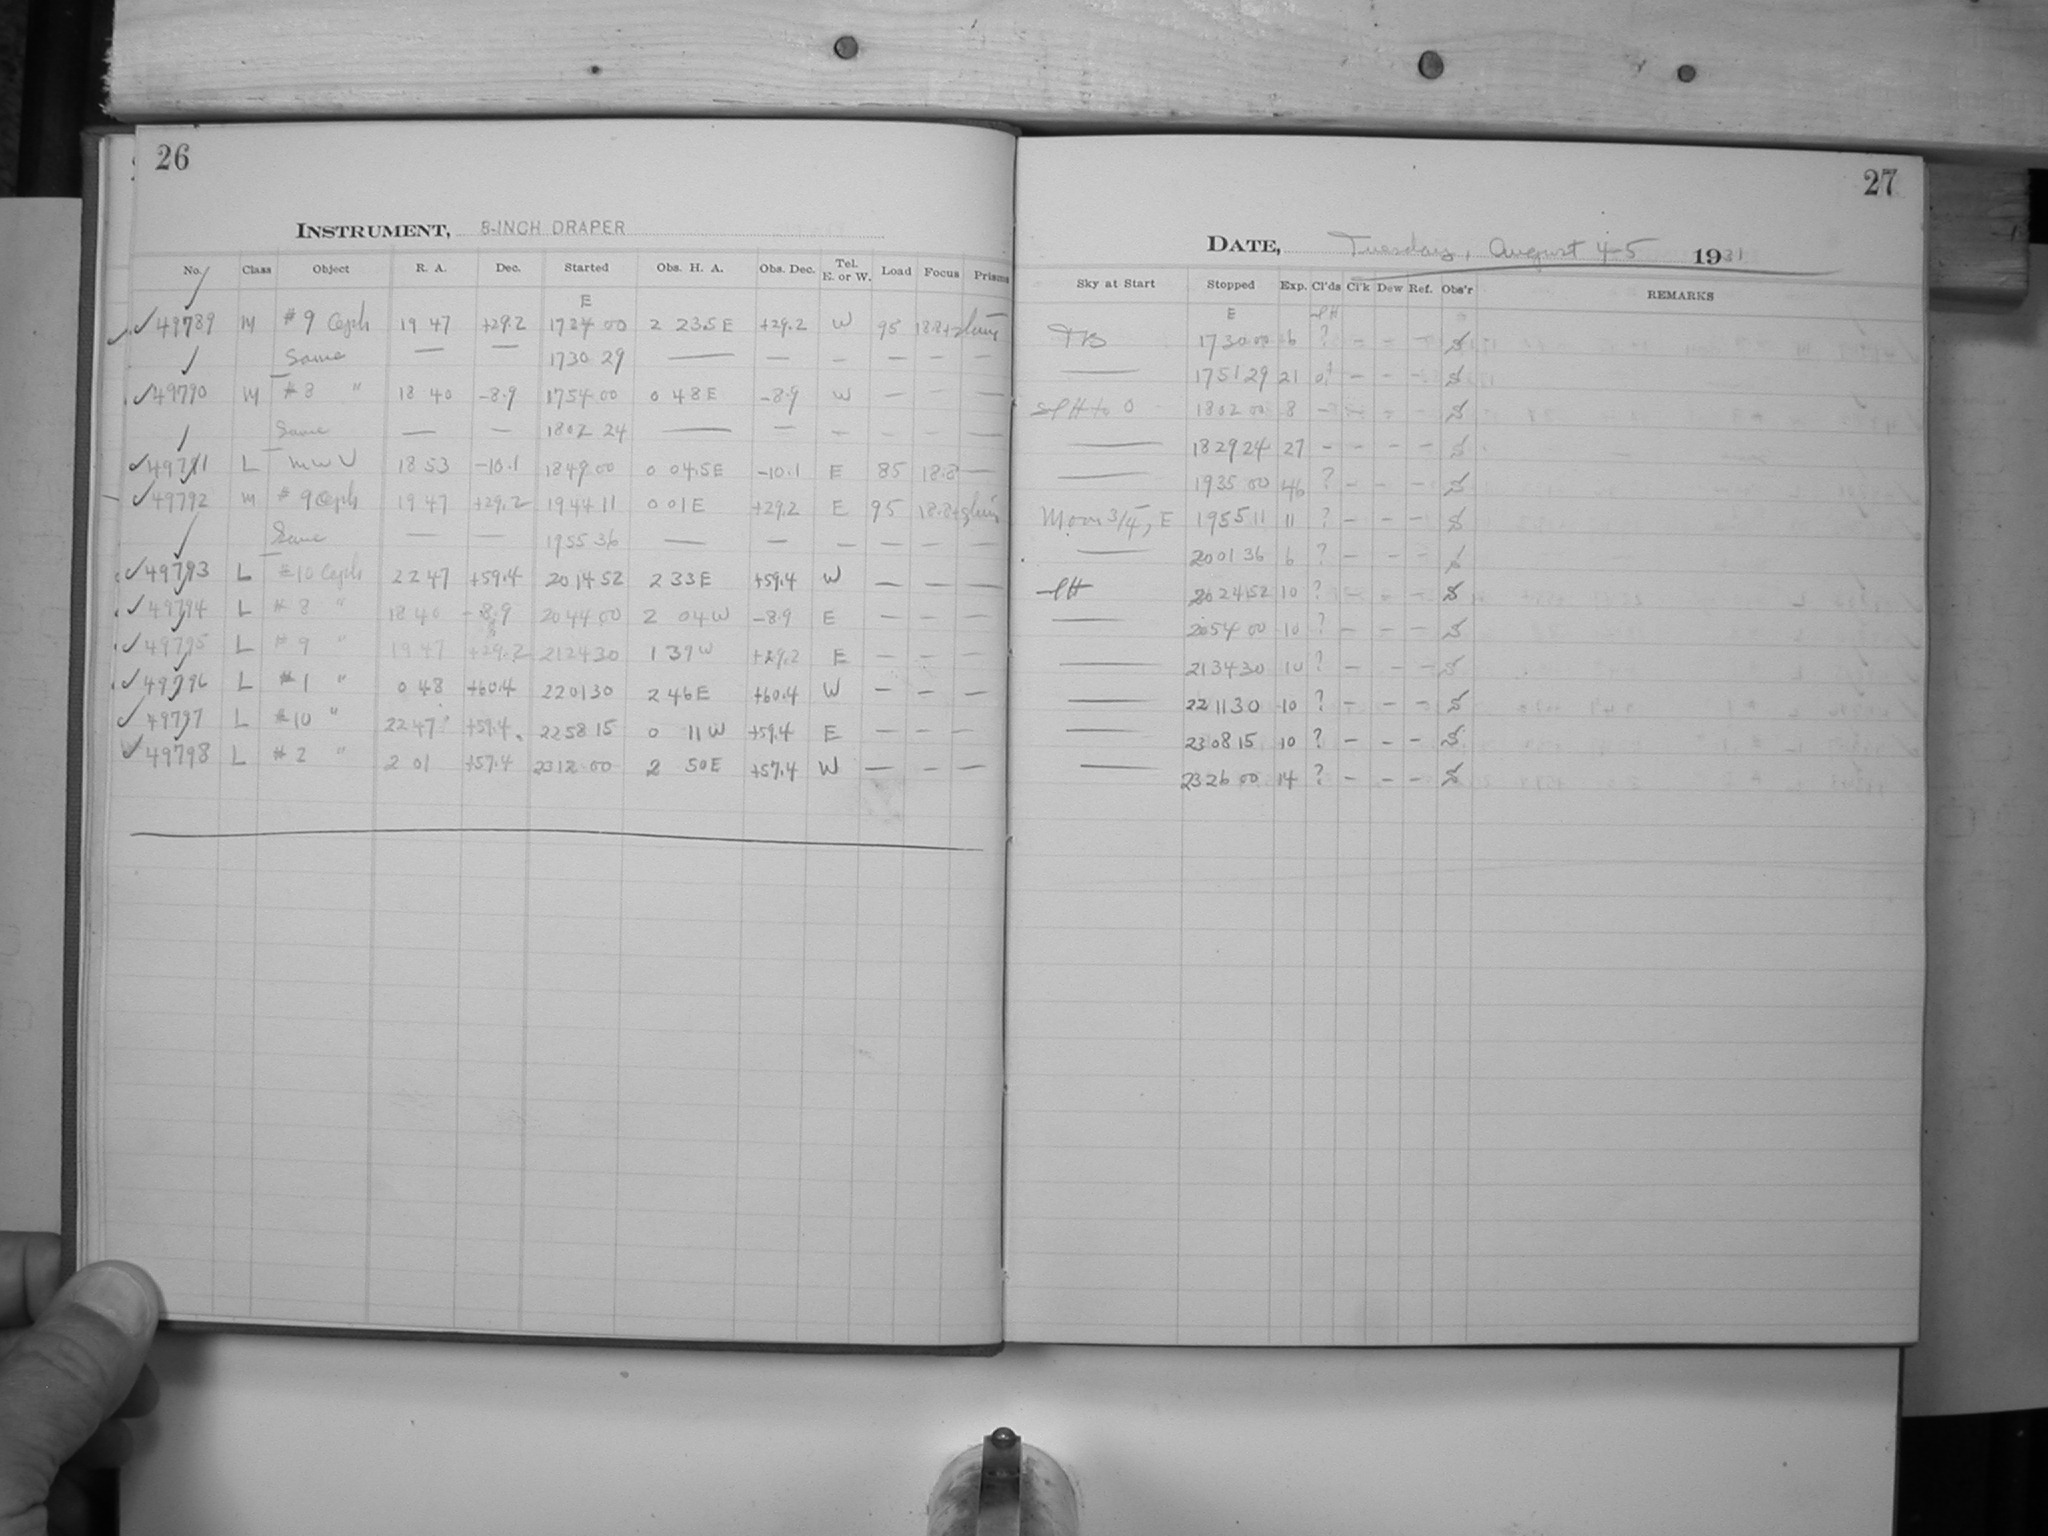 26
INSTRUMENT, 8-INCH DRAPER
No. Class Object R. A. Dec. Started Obs. H. A. Obs. Dec. Tel. E. or W. Load Focus Prisms
E
49789 M #9 Ceph 19 47 +29.2 1724 00 2 23.5 E +29.2 W 95
Same — — 1730 29 — — — — — —
49790 M #8 " 18 40 -8.9 1754 00 0 48 E -8.9 W — — —
Same — — 1802 24 — — — — — —
49791 L MWV 18 53 -10.1 1849 00 0 04.5 E -10.1 E 85 18.8 —
49792 M #9 Ceph 19 47 +29.2 1944 11 0 01 E +29.2 E 95
Same — — 1955 36 — — — — — —
49793 L #10 Ceph 22 47 +59.4 2014 52 2 33 E +59.4 W — — —
49794 L #8 " 18 40 -8.9 2044 00 2 04 W -8.9 E — — —
49795 L #9 " 19 47 +29.2 2124 30 1 39 W +29.2 E — — —
49796 L #1 " 0 48 +60.4 2201 30 2 46 E +60.4 W — — —
49797 L #10 " 22 47 +59.4 2258 15 0 11 W +59.4 E — — —
49798 L #2 " 2 01 +57.4 2312 00 2 50 E +57.4 W — — —
27
DATE, Tuesday, August 4-5 1931
Sky at Start Stopped Exp. Cl'ds Cl'k Dew Ref. Obs'r REMARKS
E
1730 00 6 ? — — — S
— 1751 29 21 — — — S
1802 00 8 — — — — S
— 1829 24 27 — — — — S
— 1935 00 46 ? — — — S
Moon 3/4, E 1955 11 11 ? — — — S
— 2001 36 6 ? — — — S
2024 52 10 ? — — — S
— 2054 00 10 ? — — — S
— 2134 30 10 ? — — — S
— 2211 30 10 ? — — — S
— 2308 15 10 ? — — — S
— 2326 00 14 ? — — — S